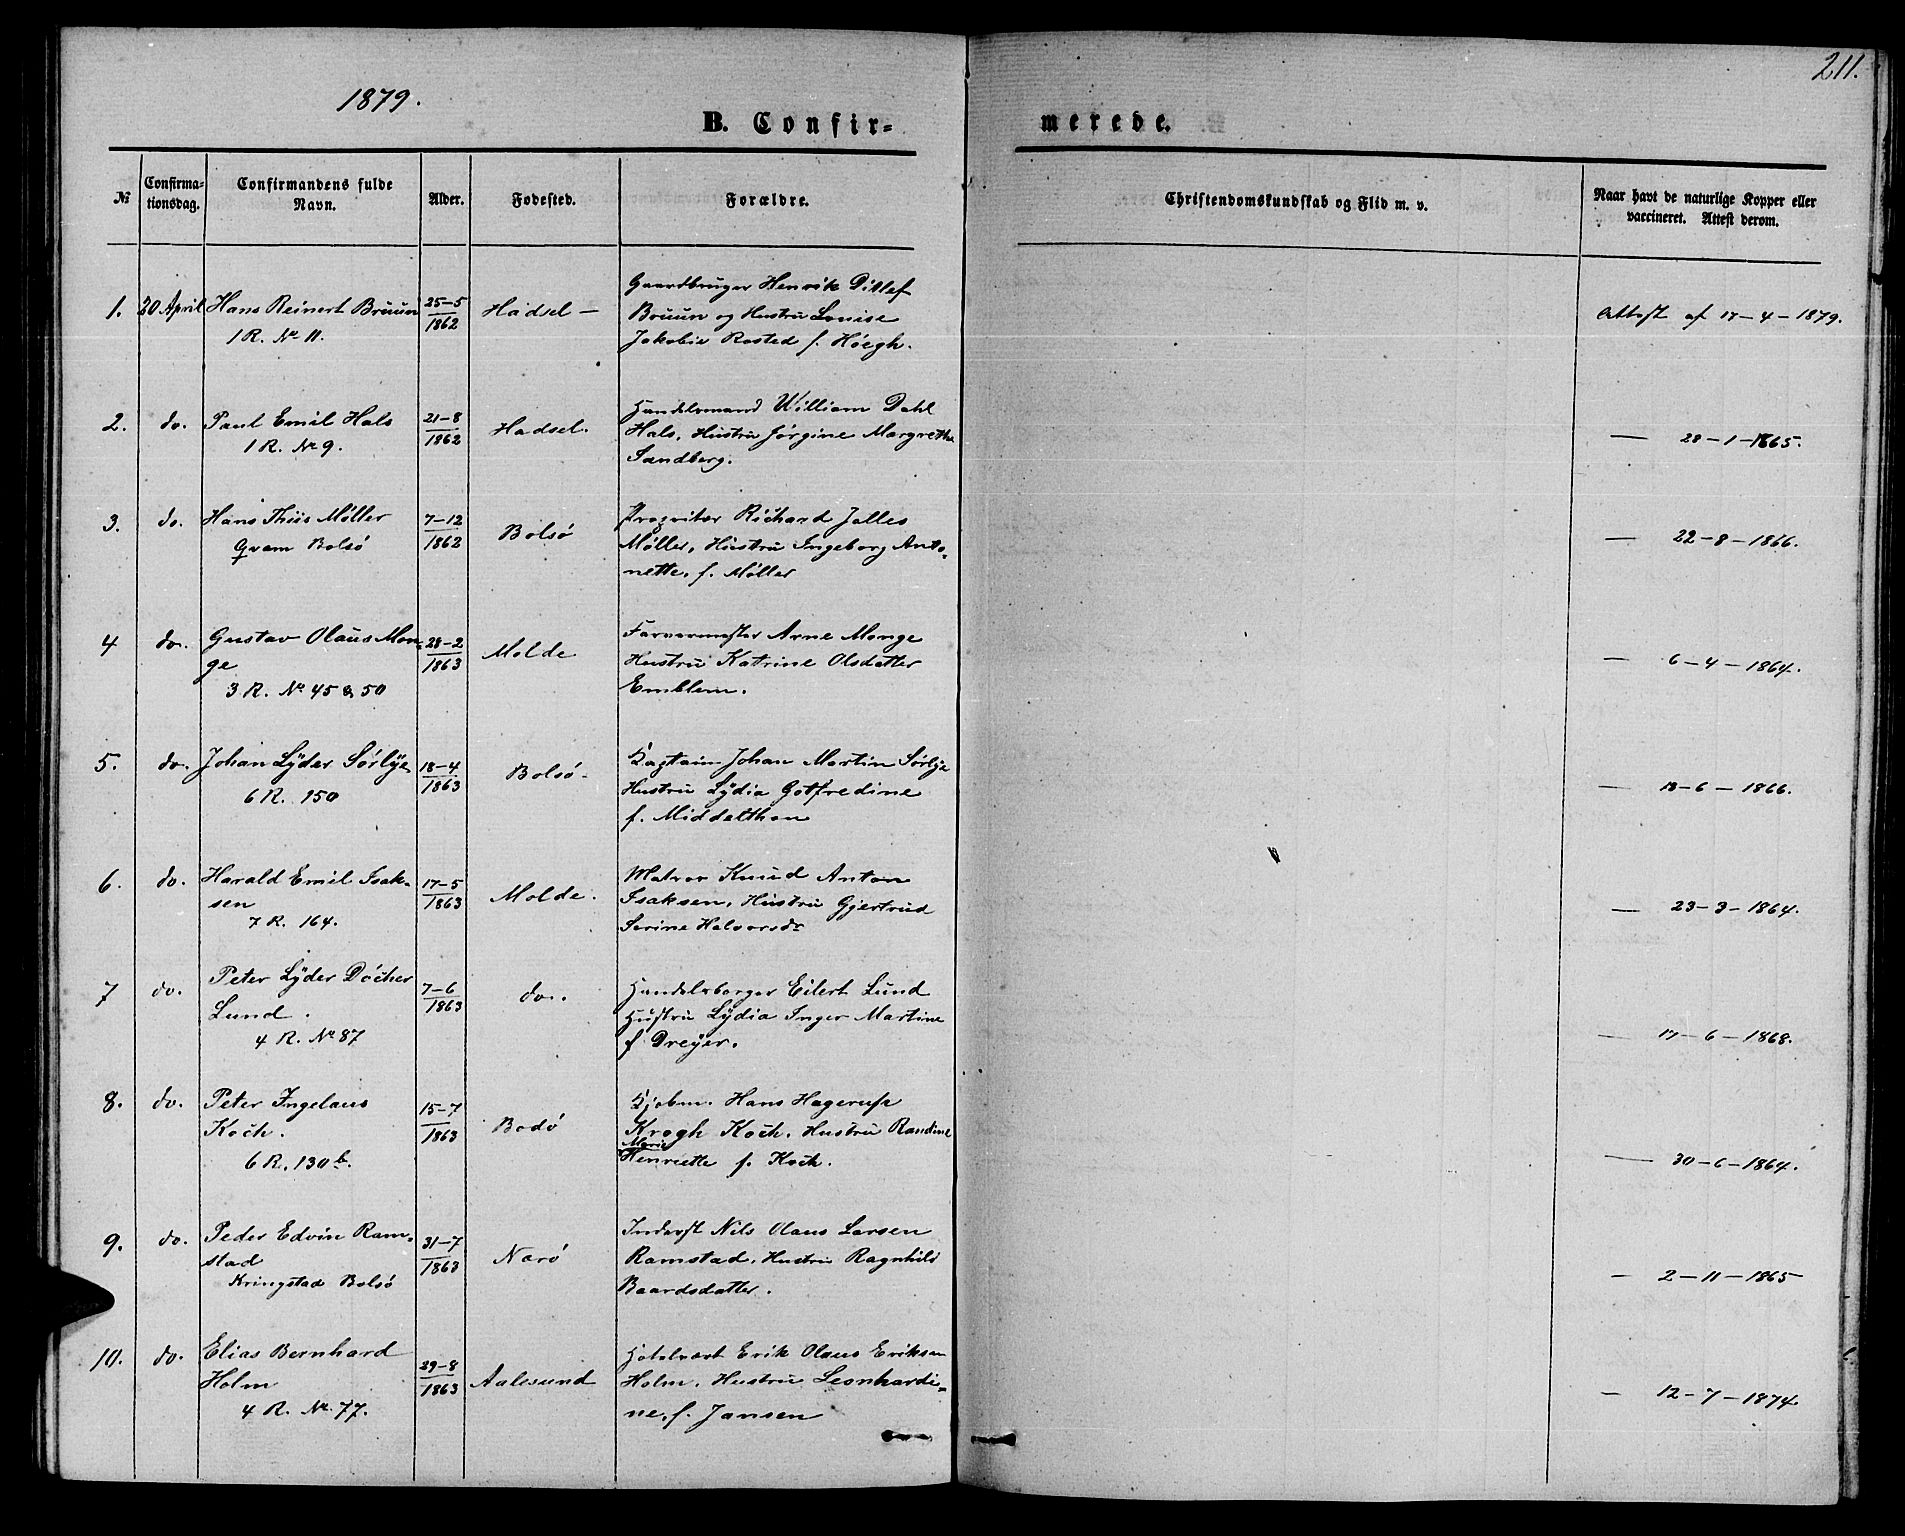 1879.
211.
B. Confir-
merede.
№
Confirma-
tionsdag.
Confirmandens fulde
Navn.
Alder.
Fødested.
Forældre.
Christendomskundskab og Flid m. v.
Naar havt de naturlige Kopper eller
vaccineret. Attest derom.
1. 20 April Hans Reinert Bruun
1 R. No 11.
25-5
1862
Hadsel -
Gaardbruger Henrik Ditlef
Bruun og Hustru Louise
Jakobie Rosted f. Høegh.
Attest af 17-4-1879.
2. do. Paul Emil Hals
1 R. No 9.
21-8
1862
Hadsel.
Handelsmand William Dahl
Hals, Hustru Jørgine Margrethe
Sandberg.
— 28-1-1865.
3. do. Hans Thiis Møller
Qvam Bolsø
7-12
1862
Bolsø
Proprietær Richard Jelles
Møller, Hustru Ingeborg Anto-
nette, f. Møller
— 22-8-1866.
4 do. Gustav Olaus Mon-
ge
3 R. No 45 & 50
28-2
1863
Molde
Farvermester Arne Monge
Hustru Katrine Olsdatter
Emblem.
— 6-4-1864.
5. do. Johan Lyder Sørlye
6 R. 150
18-4
1863
Bolsø.
Kaptain Johan Martin Sørlye
Hustru Lydia Gotfredine
f. Middelthon
— 18-6-1866.
6. do. Harald Emil Isak-
sen
7 R. 164.
17-5
1863
Molde.
Matros Knud Anton
Isaksen, Hustru Gjertrud
Serine Halvorsdr
— 23-3-1864.
7 do. Peter Lyder Döcher
Lund.
4 R. No 87
7-6
1863
do.
Handelsborger Eilert Lund
Hustru Lydia Inger Martine
f Dreyer.
— 17-6-1868.
8. do. Peter Ingelaus
Koch.
6 R. 130 b.
15-7
1863
Bodø
Kjøbm. Hans Hagerup
Krogh Koch, Hustru Randine
Marie
Henriette f. Koch.
— 30-6-1864.
9. do. Peder Edvin Ram-
stad
Kringstad Bolsø
31-7
1863
Narø
Inderst Nils Olaus Larsen
Ramstad, Hustru Ragnhild
Baardsdatter.
— 2-11-1865
10. do. Elias Bernhard
Holm
4 R. No 77.
29-8
1863
Aalesund
Hotelvært Erik Olaus Eriksen
Holm, Hustru Leonhardi-
ne, f. Jansen
— 12-7-1874.